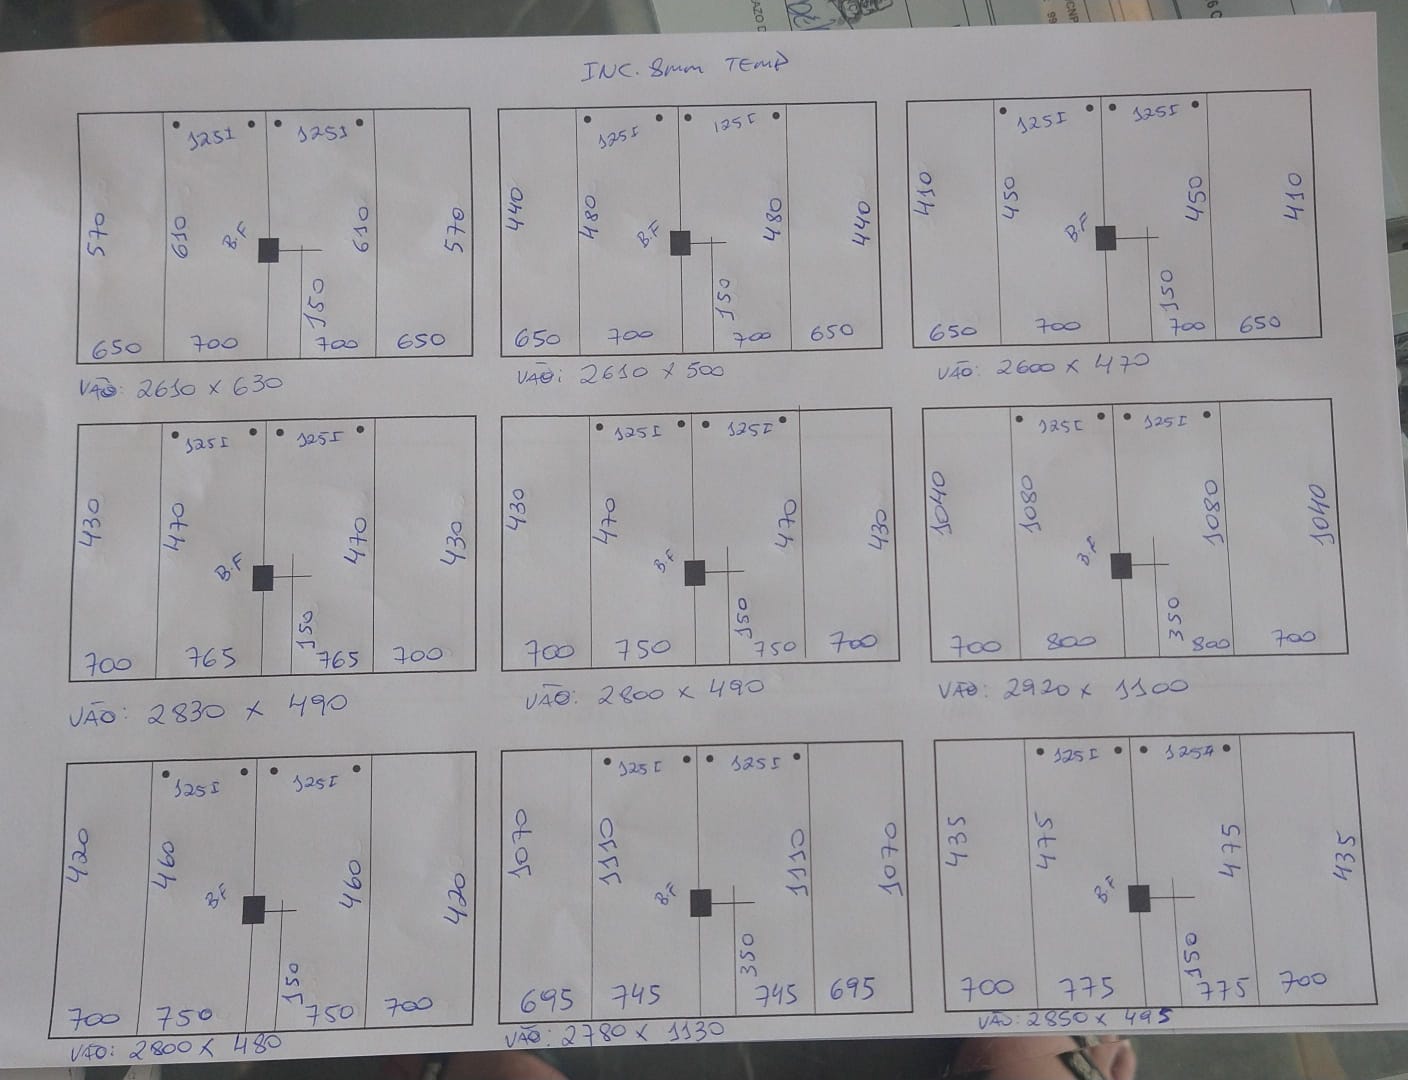 INC. 8mm TEMP
125I 125I
570 610 B.F 610 570
150
650 700 700 650
VÃO: 2610 x 630
125I 125I
440 480 B.F 480 440
150
650 700 700 650
VÃO: 2610 x 500
125I 125I
410 450 B.F 450 410
150
650 700 700 650
VÃO: 2600 x 470
125I 125I
430 470 B.F 470 430
150
700 765 765 700
VÃO: 2830 x 490
125I 125I
430 470 B.F 470 430
150
700 750 750 700
VÃO: 2800 x 490
125I 125I
1040 1080 B.F 1080 1040
350
700 800 800 700
VÃO: 2920 x 1100
125I 125I
420 460 B.F 460 420
150
700 750 750 700
VÃO: 2800 x 480
125I 125I
1070 1110 B.F 1110 1070
350
695 745 745 695
VÃO: 2780 x 1130
125I
435 475 B.F 475 435
150
700 775 775 700
VÃO: 2850 x 495